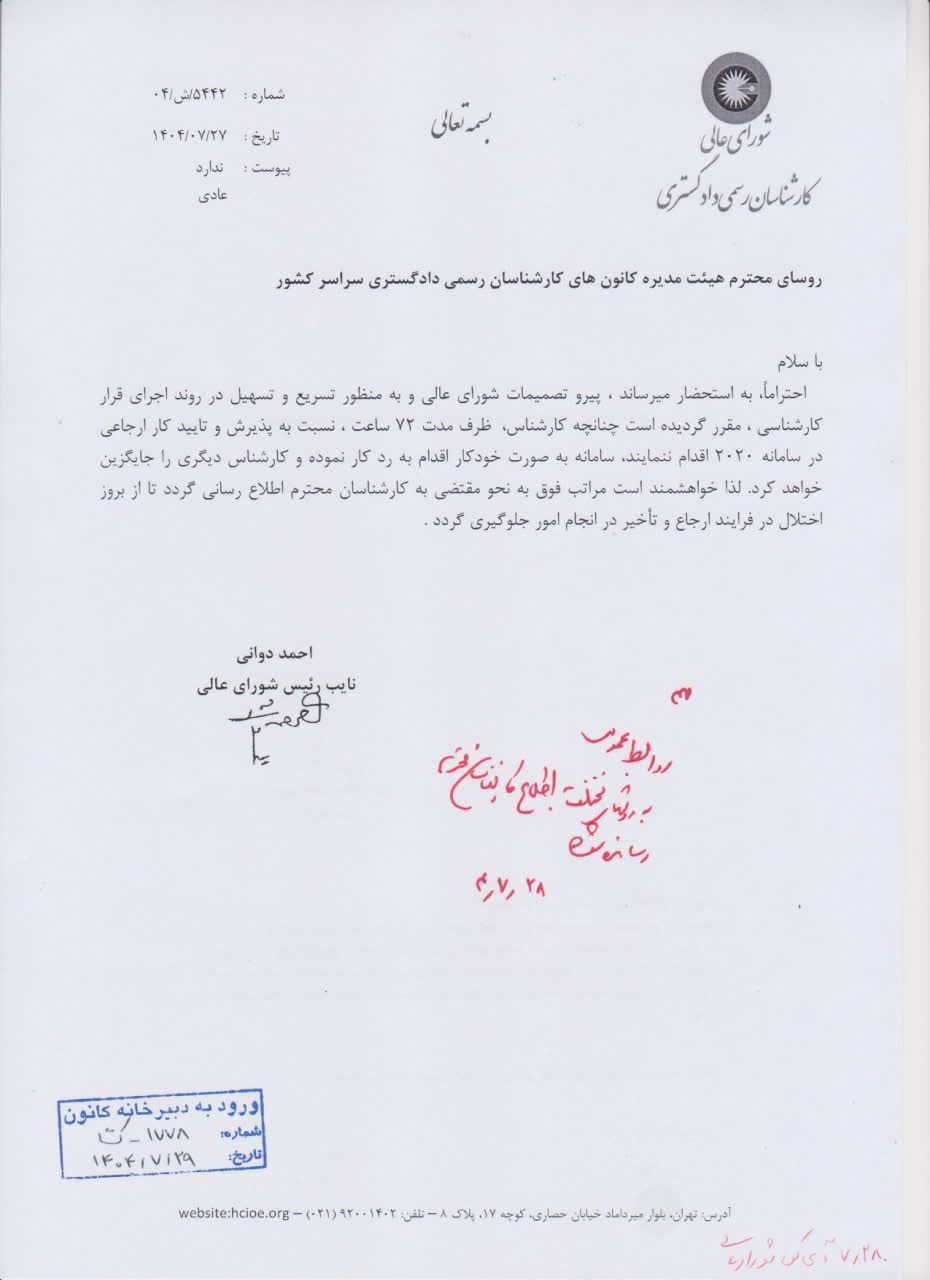 شورای عالی
کارشناسان رسمی دادگستری
بسمه تعالی
شماره : ۰۴/ش/۵۴۴۲
تاریخ : ۱۴۰۴/۰۷/۲۷
پیوست : ندارد
عادی
روسای محترم هیئت مدیره کانون های کارشناسان رسمی دادگستری سراسر کشور
با سلام
احتراماً، به استحضار میرساند ، پیرو تصمیمات شورای عالی و به منظور تسریع و تسهیل در روند اجرای قرار
کارشناسی ، مقرر گردیده است چنانچه کارشناس، ظرف مدت ۷۲ ساعت ، نسبت به پذیرش و تایید کار ارجاعی
در سامانه ۲۰۲۰ اقدام ننمایند، سامانه به صورت خودکار اقدام به رد کار نموده و کارشناس دیگری را جایگزین
خواهد کرد. لذا خواهشمند است مراتب فوق به نحو مقتضی به کارشناسان محترم اطلاع رسانی گردد تا از بروز
اختلال در فرایند ارجاع و تأخیر در انجام امور جلوگیری گردد .
احمد دوانی
نایب رئیس شورای عالی
روابط عمومی
به روشهای مختلف اطلاع کارشناسان محترم
رسانده شود
۴٫۷٫۲۸
ورود به دبیرخانه کانون
شماره: ۱۷۷۸-ک
تاریخ: ۱۴۰۴/۷/۲۹
آدرس: تهران، بلوار میرداماد خیابان حصاری، کوچه ۱۷، پلاک ۸ – تلفن: ۹۲۰۰۱۴۰۲ (۰۲۱) – website:hcioe.org
۷٫۲۸